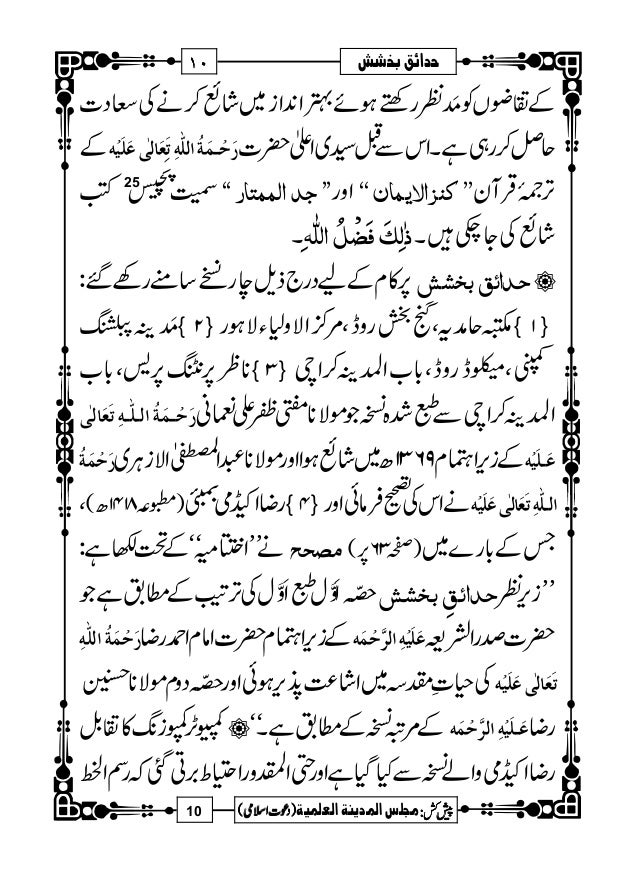 حدائق بخشش
۱۰
کے تقاضوں کو مَدنظر رکھتے ہوئے بہتر انداز میں شائع کرنے کی سعادت
حاصل کر رہی ہے۔ اس سے قبل سیدی اعلیٰ حضرت رَحْمَةُ اللهِ تَعَالٰی عَلَیْه کے
ترجمۂ قرآن ’’کنز الایمان‘‘ اور ’’جد الممتار‘‘ سمیت پچیس25 کتب
شائع کی جا چکی ہیں۔ ذٰلِكَ فَضْلُ اللّٰهِ۔
۞ حدائق بخشش پر کام کے لیے درج ذیل چار نسخے سامنے رکھے گئے:
{۱} مکتبہ حامدیہ، گنج بخش روڈ، مرکز الاولیاء لاہور {۲} مَدینہ پبلشنگ
کمپنی، میکلوڈ روڈ، باب المدینہ کراچی {۳} ناظر پرنٹنگ پریس، باب
المدینہ کراچی سے طبع شدہ نسخہ جو مولانا مفتی ظفر علی نعمانی رَحْمَةُ اللهِ تَعَالٰی
عَلَیْه کے زیرِ اہتمام ۱۳۶۹ھ میں شائع ہوا اور مولانا عبدالمصطفیٰ الازہری رَحْمَةُ
اللهِ تَعَالٰی عَلَیْه نے اس کی تصحیح فرمائی اور {۴} رضا اکیڈمی بمبئی (مطبوعہ ۱۴۱۸ھ)،
جس کے بارے میں (صفحہ ۶۳ پر) مصحح نے ’’اختتامیہ‘‘ کے تحت لکھا ہے:
’’زیرِ نظر حدائقِ بخشش حصّہ اوَّل طبع اوَّل کی ترتیب کے مطابق ہے جو
حضرت صدر الشریعہ عَلَیْهِ الرَّحْمَه کے زیرِ اہتمام حضرت امام احمد رضا رَحْمَةُ اللهِ
تَعَالٰی عَلَیْه کی حیاتِ مقدسہ میں اشاعت پذیر ہوئی اور حصّہ دوم مولانا حسنین
رضا عَلَیْهِ الرَّحْمَه کے مرتبہ نسخہ کے مطابق ہے۔‘‘ ۞ کمپیوٹر کمپوزنگ کا تقابل
رضا اکیڈمی والے نسخہ سے کیا گیا ہے اور حتی المقدور احتیاط برتی گئی کہ رسم الخط
پیش کش: مجلس المدینة العلمیة (دعوتِ اسلامی)
10